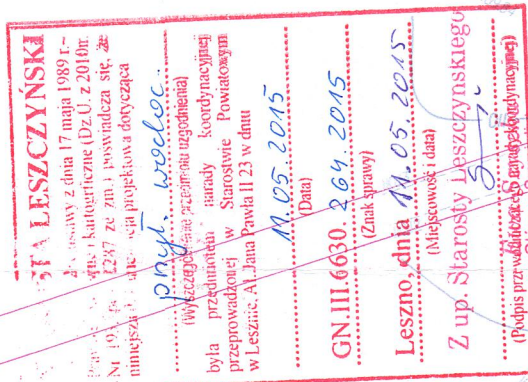 STA LESZCZYŃSKI
ustawy z dnia 17 maja 1989 r. –
i kartograficzne (Dz.U. z 2010r.
Nr 193, 1287 ze zm.) poświadcza się, że
dokumentacja projektowa dotycząca
przył. wodoc.
(Wyszczególnienie przedmiotu uzgodnienia)
była przedmiotem narady koordynacyjnej
przeprowadzonej w Starostwie Powiatowym
w Lesznie, Al.Jana Pawła II 23 w dniu
11.05.2015
(Data)
GN.III.6630. 264.2015
(Znak sprawy)
Leszno, dnia 11.05.2015
(Miejscowość i data)
Z up. Starosty Leszczyńskiego
(Podpis